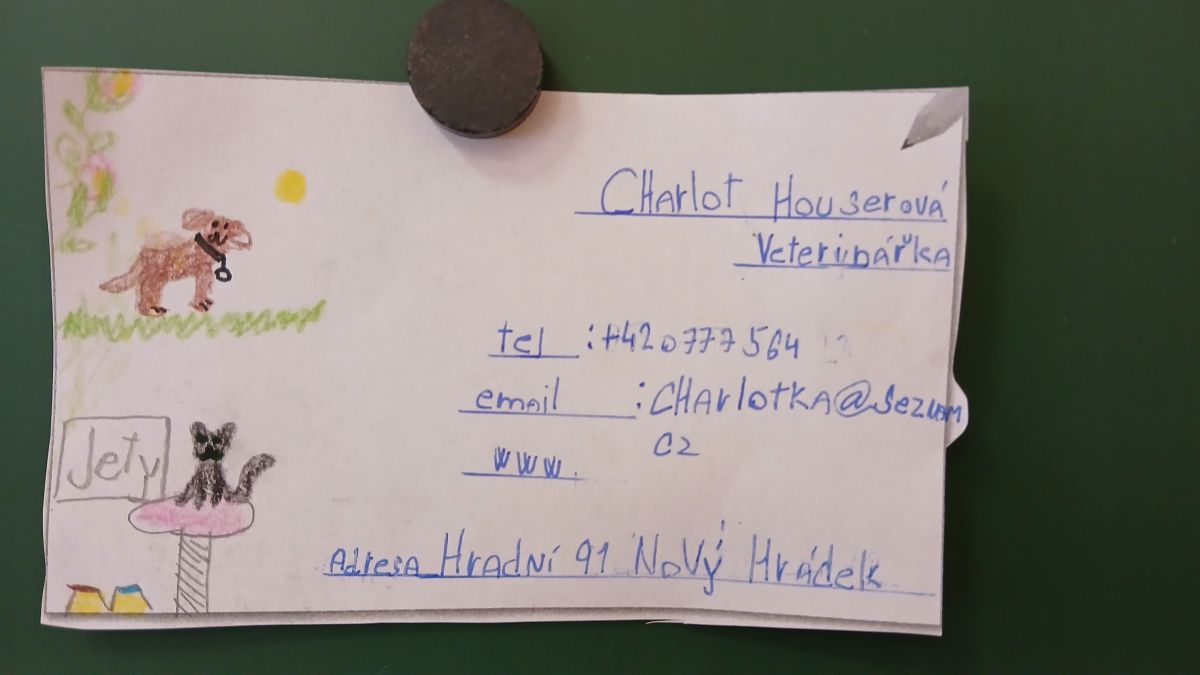 CHarlot Houserová
Veterinářka
tel : +420777564
email : CHarlotka@seznam
cz
www.
Jety
Adresa Hradní 91 Nový Hrádek